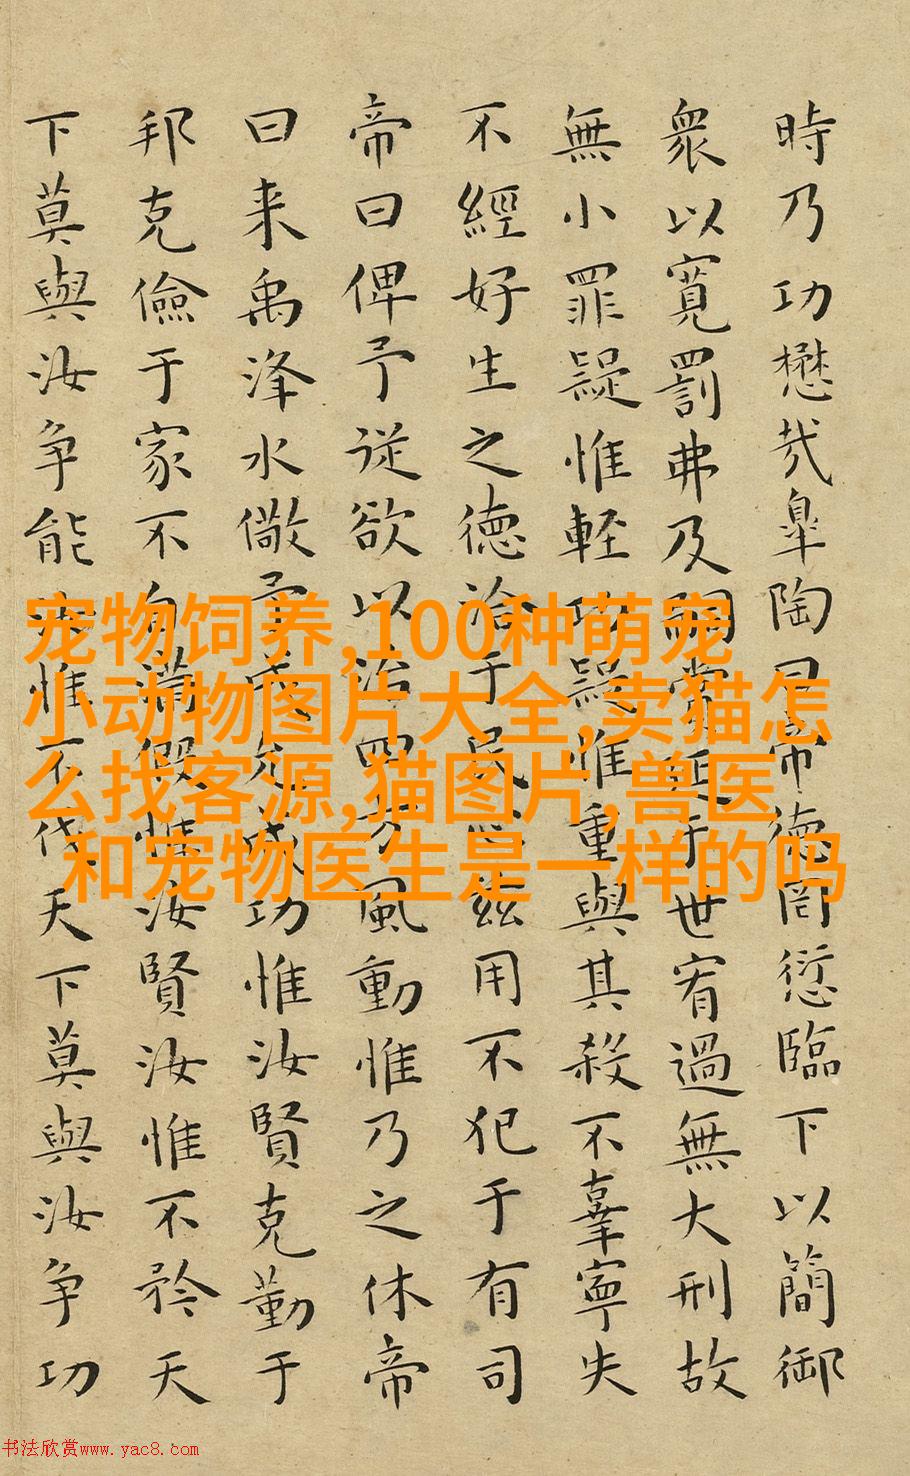 時乃功懋哉皐陶曰帝德罔愆臨下以簡御
衆以寛罰弗及嗣賞延于世宥過無大刑故
無小罪疑惟軽功疑惟重與其殺不辜寧失
不經好生之德洽于民心茲用不犯于有司
帝曰俾予従欲以治四方風動惟乃之休帝
曰来禹洚水儆予成允成功惟汝賢克勤于
邦克儉于家不自滿假惟汝賢汝惟不矜天
下莫與汝争能汝惟不伐天下莫與汝争功
宠物饲养,100种萌宠
小动物图片大全,卖猫怎
么找客源,猫图片,兽医
和宠物医生是一样的吗
书法欣赏www.yac8.com